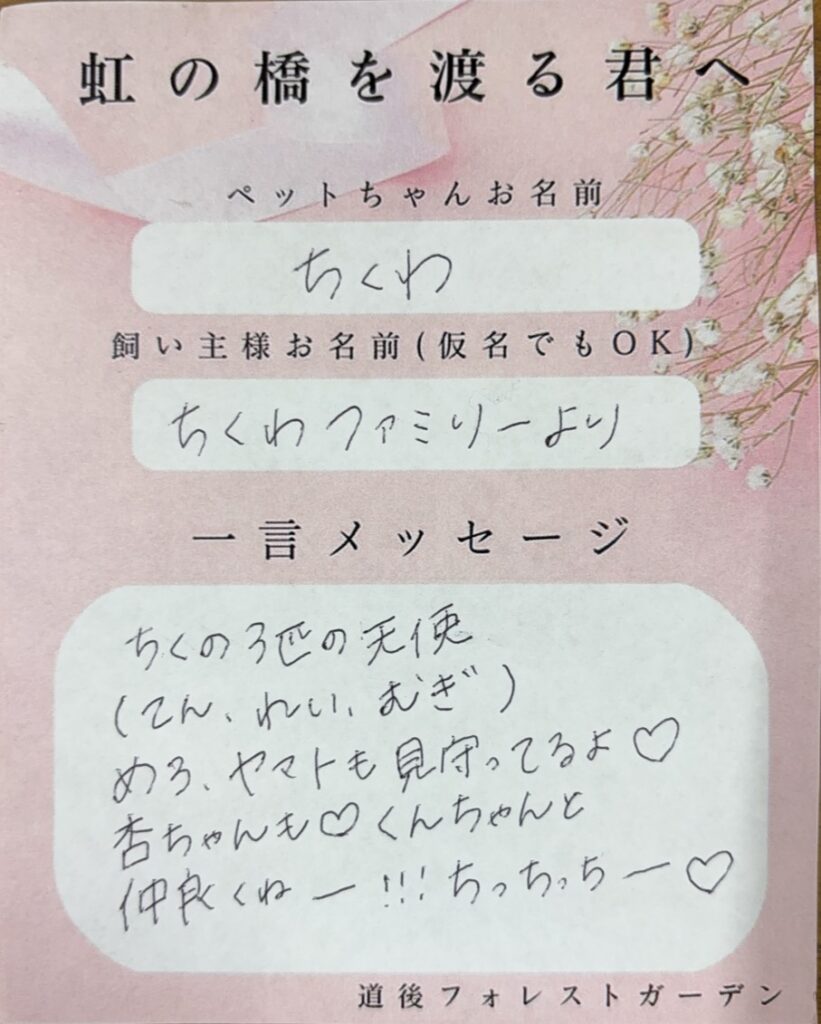 虹の橋を渡る君へ
ペットちゃんお名前
ちくわ
飼い主様お名前(仮名でもOK)
ちくわファミリーより
一言メッセージ
ちくの3匹の天使
(てん、れい、むぎ)
めろ、ヤマトも見守ってるよ♡
杏ちゃんも♡くんちゃんと
仲良くねー!!!ちっちっちー♡
道後フォレストガーデン